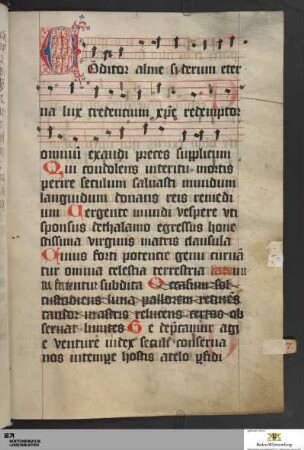 Cōditor alme siderum eter
na lux credentium xp̄e redemptor
omniū exaudi preces supplicum
Qui condolens interitu mortis
perire seculum saluasti mundum
languidum donans reis remedi
um Uergente mundi vespere vti
sponsus dethalamo egressus hone
stissima virginis matris clausula
Cuius forti potencie genu curuā
tur omnia celestia terrestria
fatentur subdita Occasum sol
custodiens luna pallorem retinēs
candor in astris relucens certos ob
seruat limites Te dep̄camur agi
e venture iudex seculi conserua
nos in tempe hostis a telo p̄fidi
Baden-Württemberg